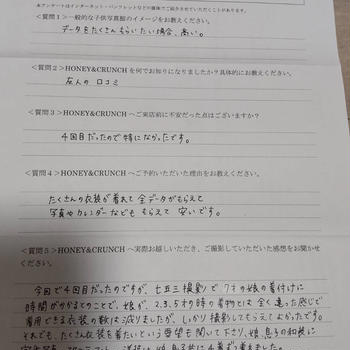 本アンケートはインターネット・パンフレットなどの媒体でご紹介させていただくことがあります。
<質問１>一般的な子供写真館のイメージをお教えください。
データをたくさんもらいたい場合、高い。
<質問２>HONEY&CRUNCH を何でお知りになりましたか？具体的にお教えください。
友人の口コミ
<質問３>HONEY&CRUNCH へご来店前に不安だった点はございますか？
4回目だったので特になかったです。
<質問４>HONEY&CRUNCH へご予約いただいた理由をお教えください。
たくさんの衣装が着れて全データがもらえて
写真やカレンダーなどももらえて安いです。
<質問５>HONEY&CRUNCH へ実際お越しいただき、ご撮影していただいた感想をお聞かせ
ください。
今回で4回目だったのですが、七五三撮影で7才の娘の着付けに
時間がかかるとのことで、娘が、2.3.5才の時の着物とは全く違った感じで
着用できる衣装の数は減りましたが、しっかり撮影してもらえてよかったです。
それでも、たくさん衣装を着たいという要望も聞いて下さり、娘、息子の和装に